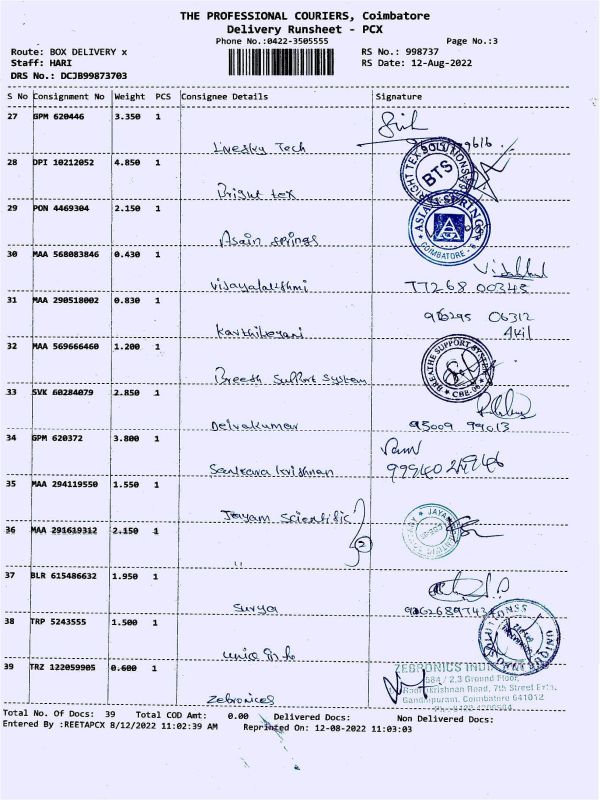 THE PROFESSIONAL COURIERS, Coimbatore
Delivery Runsheet - PCX
Phone No.:0422-3505555 Page No.:3
Route: BOX DELIVERY x RS No.: 998737
Staff: HARI RS Date: 12-Aug-2022
DRS No.: DCJB99873703
S No Consignment No Weight PCS Consignee Details Signature
27 GPM 620446 3.350 1
Livesky Tech
28 DPI 10212052 4.850 1
BRIGHT TEX SOLUTIONS
BTS
Bright tex
29 PON 4469304 2.150 1
ASIAN SPRINGS
COIMBATORE - 6
Asain springs
30 MAA 568083846 0.430 1
vijayalakshmi TT268 00345
31 MAA 290518002 0.830 1
06312
Karthikeyani
32 MAA 569666460 1.200 1
BREATHE SUPPORT SYSTEM
CBE-06
Breesh Support System
33 SVK 60284079 2.850 1
Delvakumar 95009 99013
34 GPM 620372 3.800 1
Ram
Sankara krishnan 99940
35 MAA 294119550 1.550 1
Jayam Scientific
JAYAM
36 MAA 291619312 2.150 1
2
"
37 BLR 615486632 1.950 1
Surya
38 TRP 5243555 1.500 1
39 TRZ 122059905 0.600 1
ZEBRONICS INDIA
584 / 2,3 Ground Floor,
Ramakrishnan Road, 7th Street Extn.
Gandhipuram, Coimbatore 641012
Zebronices
Total No. Of Docs: 39 Total COD Amt: 0.00 Delivered Docs: Non Delivered Docs:
Entered By :REETAPCX 8/12/2022 11:02:39 AM Reprinted On: 12-08-2022 11:03:03